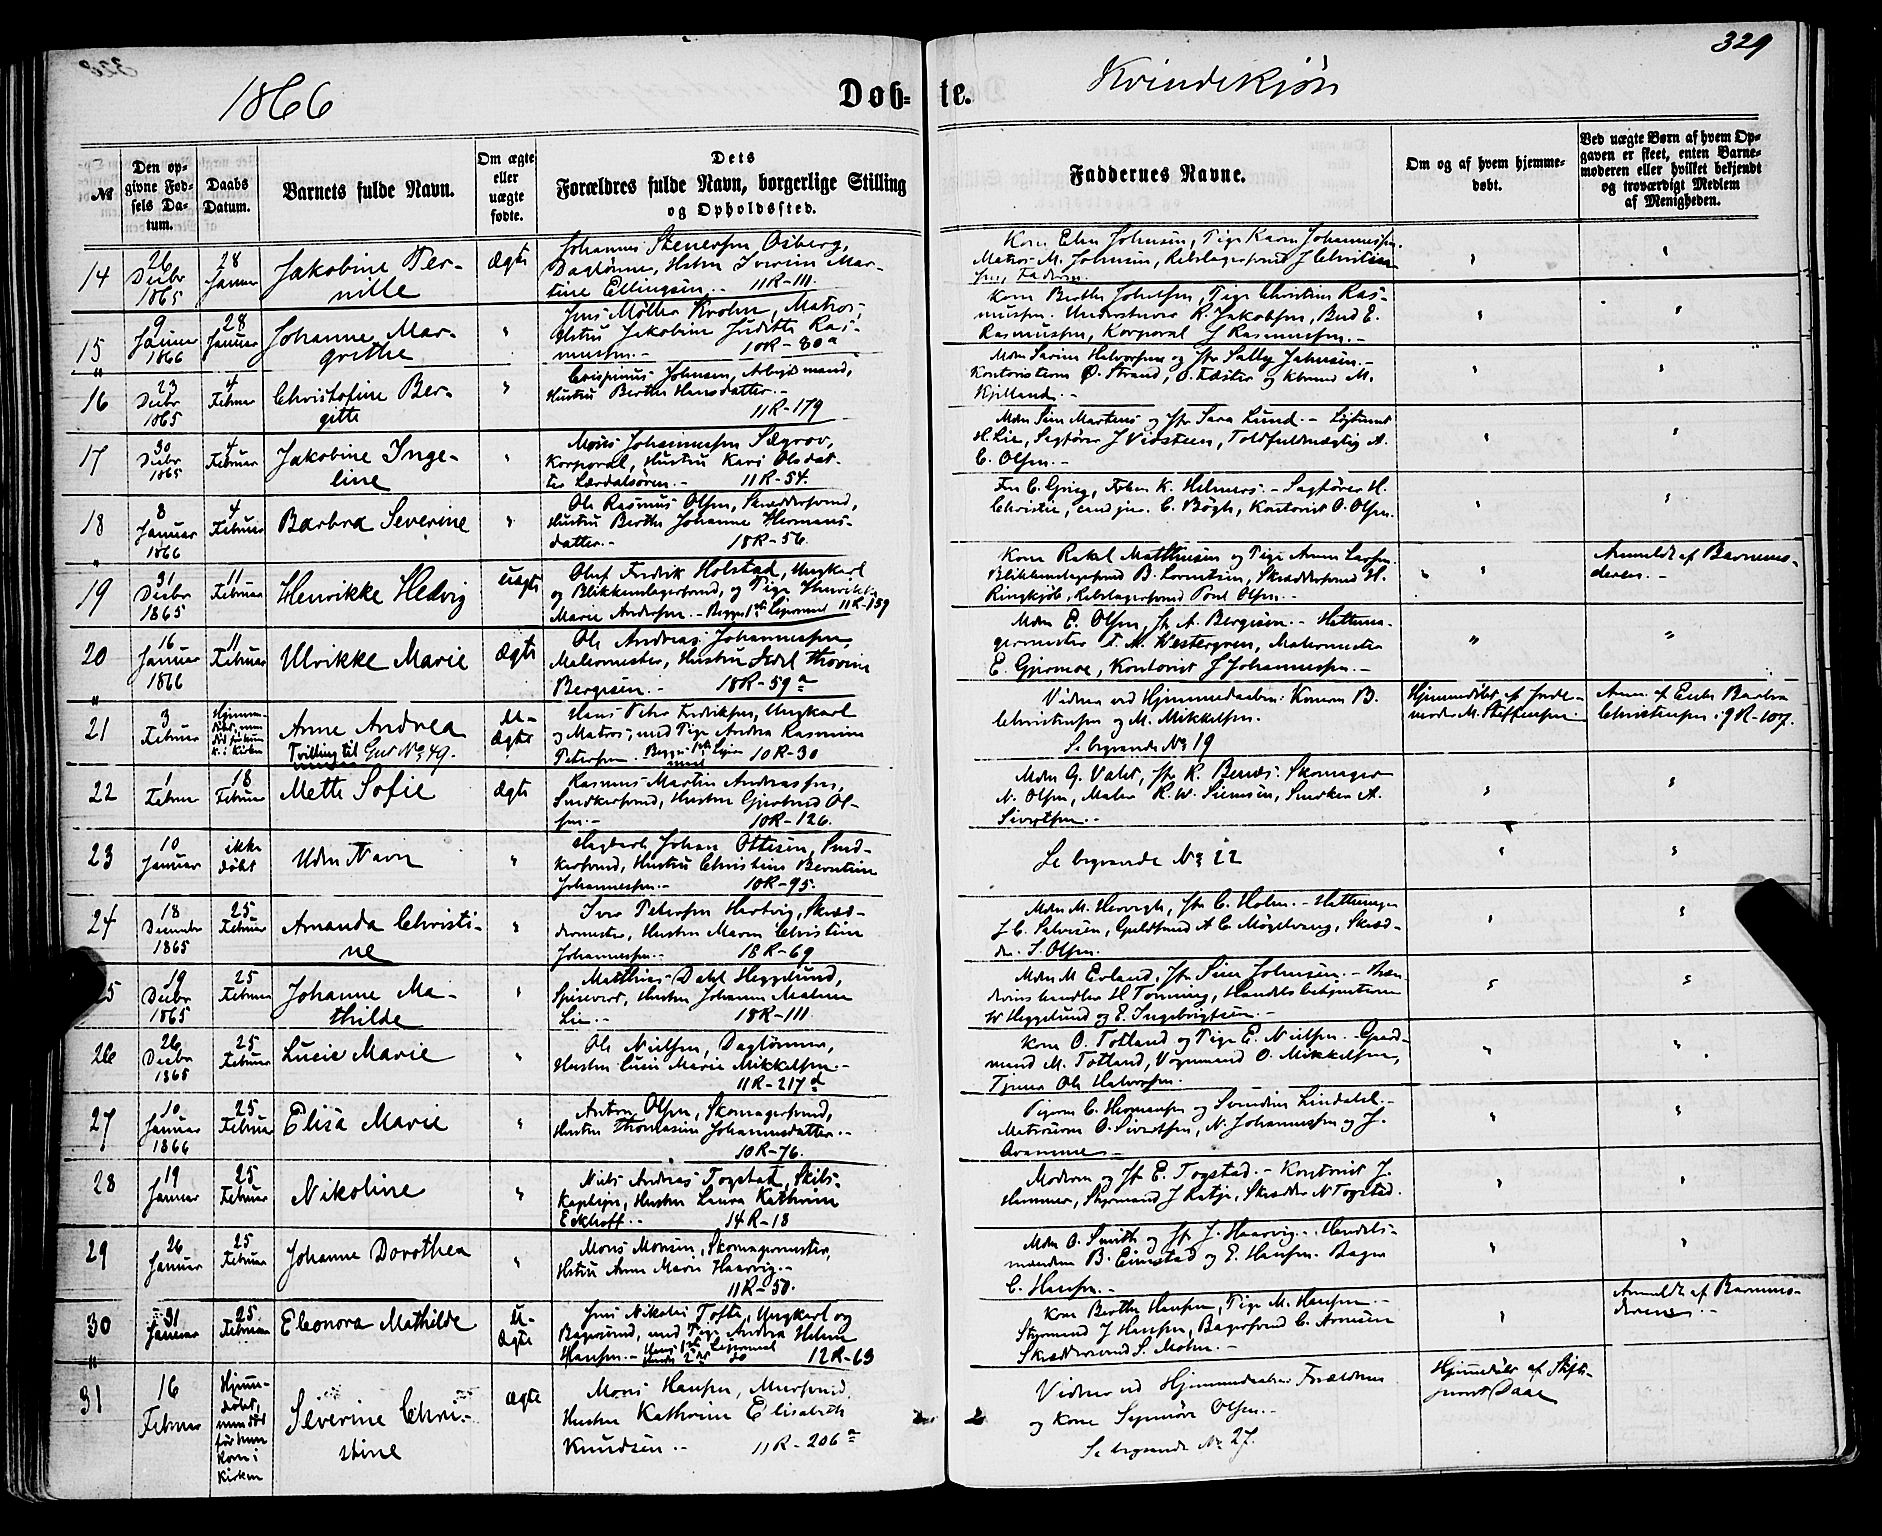 329
1866
Døb-
te.
Kvindekjøn
№
Den op-
givne Fød-
sels Da-
tum.
Daabs
Datum.
Barnets fulde Navn.
Om ægte
eller
uægte
fødte.
Dets
Forældres fulde Navn, borgerlige Stilling
og Opholdssted.
Faddernes Navne.
Om og af hvem hjemme-
døbt.
Ved uægte Børn af hvem Op-
gaven er skeet, enten Barne-
moderen eller hvilket bekjendt
og troværdigt Medlem
af Menigheden.
14
26
Decbr
1865
28
Januar
Jakobine Per-
nille
Ægte
Johannes Stenersen Osberg,
Daglønner, Hstru Iverine Mar-
tine Ellingsen.. 11R-111.
Kone Elen Johnsen, Pige Karen Johannessen.
Matros M. Johnsen, Rebslagersvend J Christian
sen, Faderen.
15
9
Januar
1866
28
Januar
Johanne Mar-
grethe
Jens Møller Krohn, Matros,
Hstru Jakobine Judithe Ras-
mussen.- 10R-80a
Kone Berthe Johnsen, Pige Christine Ras-
mussen. Understuer R. Jakobsen, Bud E.
Rasmussen, Korporal J Rasmussen.-
16
23
Decbr
1865
4
Februar
Christofine Ber-
gitte
Crispinus Johnsen, Arbejdsmand,
Hustru Berthe Hansdatter.-
11R-179
Mdm Sarine Halvorsen og Jfr Sally Johnsen.-
Kontoristerne O. Strand, O. Fæster og Kbmd M.
Kjilland.-
17
30
Decbr
1865
4
Februar
Jakobine Inge-
line
Mons Johannessen Sægrov,
Korporal, Hustru Kari Olsdat-
ter Lærdalsøren.- 11R-54.
Mdm Sine Martens og Jfr Sara Lund.- Løjtnant
H. Lie, Sagfører J Vidsteen, Toldfuldmægtig A.
C. Olsen.-
18
8
Januar
1866
4
Februar
Barbra Severine
Ole Rasmus Olsen, Skræddersvend,
Hustru Berthe Johanne Hermans-
datter.- 18R-56.
Fru C. Grieg, Frøken K. Helmers.- Sagfører H.
Christie, cand. jur. C. Bøgh, Kontorist O. Olsen.
19
31
Decbr
1865
11
Februar
Henrikke Hedvig
Uægte
Oluf Fredrik Holstad, Ungkarl
og Blikkenslagersvend, og Pige Henrikke
Marie Andersen.- Begges 1ste Lejermaal 11R-159
Kone Rakel Matthiesen og Pige Anne Larsen.
Blikkenslagersvend B. Lorentsen, Skræddersvend H.
Ringkjøb, Rebslagersvend Poul Olsen.-
Anmeldt af Barnemo-
deren.-
20
16
Januar
1866
11
Februar
Ulrikke Marie
Ægte
Ole Andreas Johannessen,
Malermester, Hustru Indel Thorine
Bergesen.- 18R-59a
Mdm E. Olsen, Jfr A. Bergesen.- Hattema-
germester T. M. Westergren, Malermester
E. Gjermoe, Kontorist J Johannessen.-
21
3
Februar
Hjemme-
døbt, men
død før hun
k. i Kirken
Anne Andrea
Tvilling til Gut No 49.
U-
ægte
Hans Peter Fredriksen, Ungkarl
og Matros, med Pige Andrea Rasmine
Petersen. Begges 1ste Lejer
maal 10R-30
Vidner ved Hjemmedaaben: Konerne B.
Christensen og M. Mikkelsen.
Se begravede No 19
Hjemmedøbt af Jorde-
moder M. Steffensen.
Anm. af Enke Barbra
Christensen i 9R-107.
22
1
Februar
18
Februar
Mette Sofie
Ægte
Rasmus Martin Andreassen,
Snedkersvend, Hustru Gjertrud Ol-
sen.- 10R-126.
Mdm G. Valet, Jfr K. Benæs. Skomager
N. Olsen, Maler R. W. Siemsen, Snedker A.
Sivertsen.-
23
10
Januar
ikke
døbt
Uden Navn
Hagbart Johan Ottesen, Sned-
kersvend, Hustru Christine Berntine
Johannessen.- 10R-95.
Se begravede No 22
24
18
December
1865
25
Februar
Amanda Christi-
ne
Iver Petersen Hertvig, Skræd-
dermester, Hustru Maren Christine
Johannessen.- 18R-69
Mdm M. Hervigh, Jfr C. Holm.- Hattemager
J. C. Salvesen, Guldsmed A C Møgelvang, Skræd-
der S. Olsen.
25
19
Decbr
1865
25
Februar
Johanne Ma-
thilde
Matthias Dahl Heggelund,
Spisevert, Hustru Johanne Malene
Lie.- 18R-111.
Mdm M Evland, Jfr Sine Johnsen.- Bræn-
devinshandler H Tønning, Handelsbetjenterne
W Heggelund og E. Ingebrigtsen.-
26
26
Decbr
1865
25
Februar
Lusie Marie
Ole Nielsen, Dagløner,
Hustru Lusie Marie Mikkelsen.-
11R-217d
Kone O. Totland og Pige E. Nielsen. Gaard-
mand M. Totland, Vognmand O. Mikkelsen,
Tjener Ole Halvorsen.
27
10
Januar
1866
25
Februar
Elisa Marie
Anton Olsen, Skomagersvend,
Hustru Thomasine Johannesdatter.-
10R-76.
Pigerne C. Hermansen og Severine Lindahl.-
Matroserne O. Sivertsen, N. Johannessen og J.
Avamme.-
28
19
Januar
25
Februar
Nikoline
Niels Andreas Togstad, Skibs-
kaptejn, Hustru Laura Kathrine
Eckhoff.- 14R-18
Moderen og Jfr E. Togstad.- Kontorist J.
Hammer, Styrmand J Katje, Skrædder N Togstad.
29
26
Januar
25
Februar
Johanne Dorothea
Mons Monsen, Skomagermester,
Hstru Anne Marie Haarvig.-
11R-50.
Mdm O. Smith og Jfr J. Haarvig.- Handels-
mændene B. Eimstad og E. Hansen. Bager
C. Hansen.-
30
31
Januar
25
Februar
Eleonora Mathilde
U-
ægte
Jens Nikolai Tofte, Ungkarl og
Bagersvend, med Pige Andrea Helene
Hansen.- Hans 1ste Lejermaal
Hendes 2det do 12R-63
Kone Berthe Hansen, Pige M. Hansen.-
Styrmand J Hansen, Bagersvend C. Arnesen
Skræddersvend S. Mohn.-
Anmeldt af Barnemo-
deren.-
31
16
Februar
Hjem-
døbt,
men død
før hun
kom i
Kirken
Severine Chri-
stine
Ægte
Mons Hansen, Muursvend,
Hustru Kathrine Elisabeth
Knudsen.- 11R-206a
Vidner ved Hjemmedaaben: Forældrene
og Kone Synnøve Olsen.-
Se begravede No 27.
Hjemmedøbt af Stifts-
provst Daae